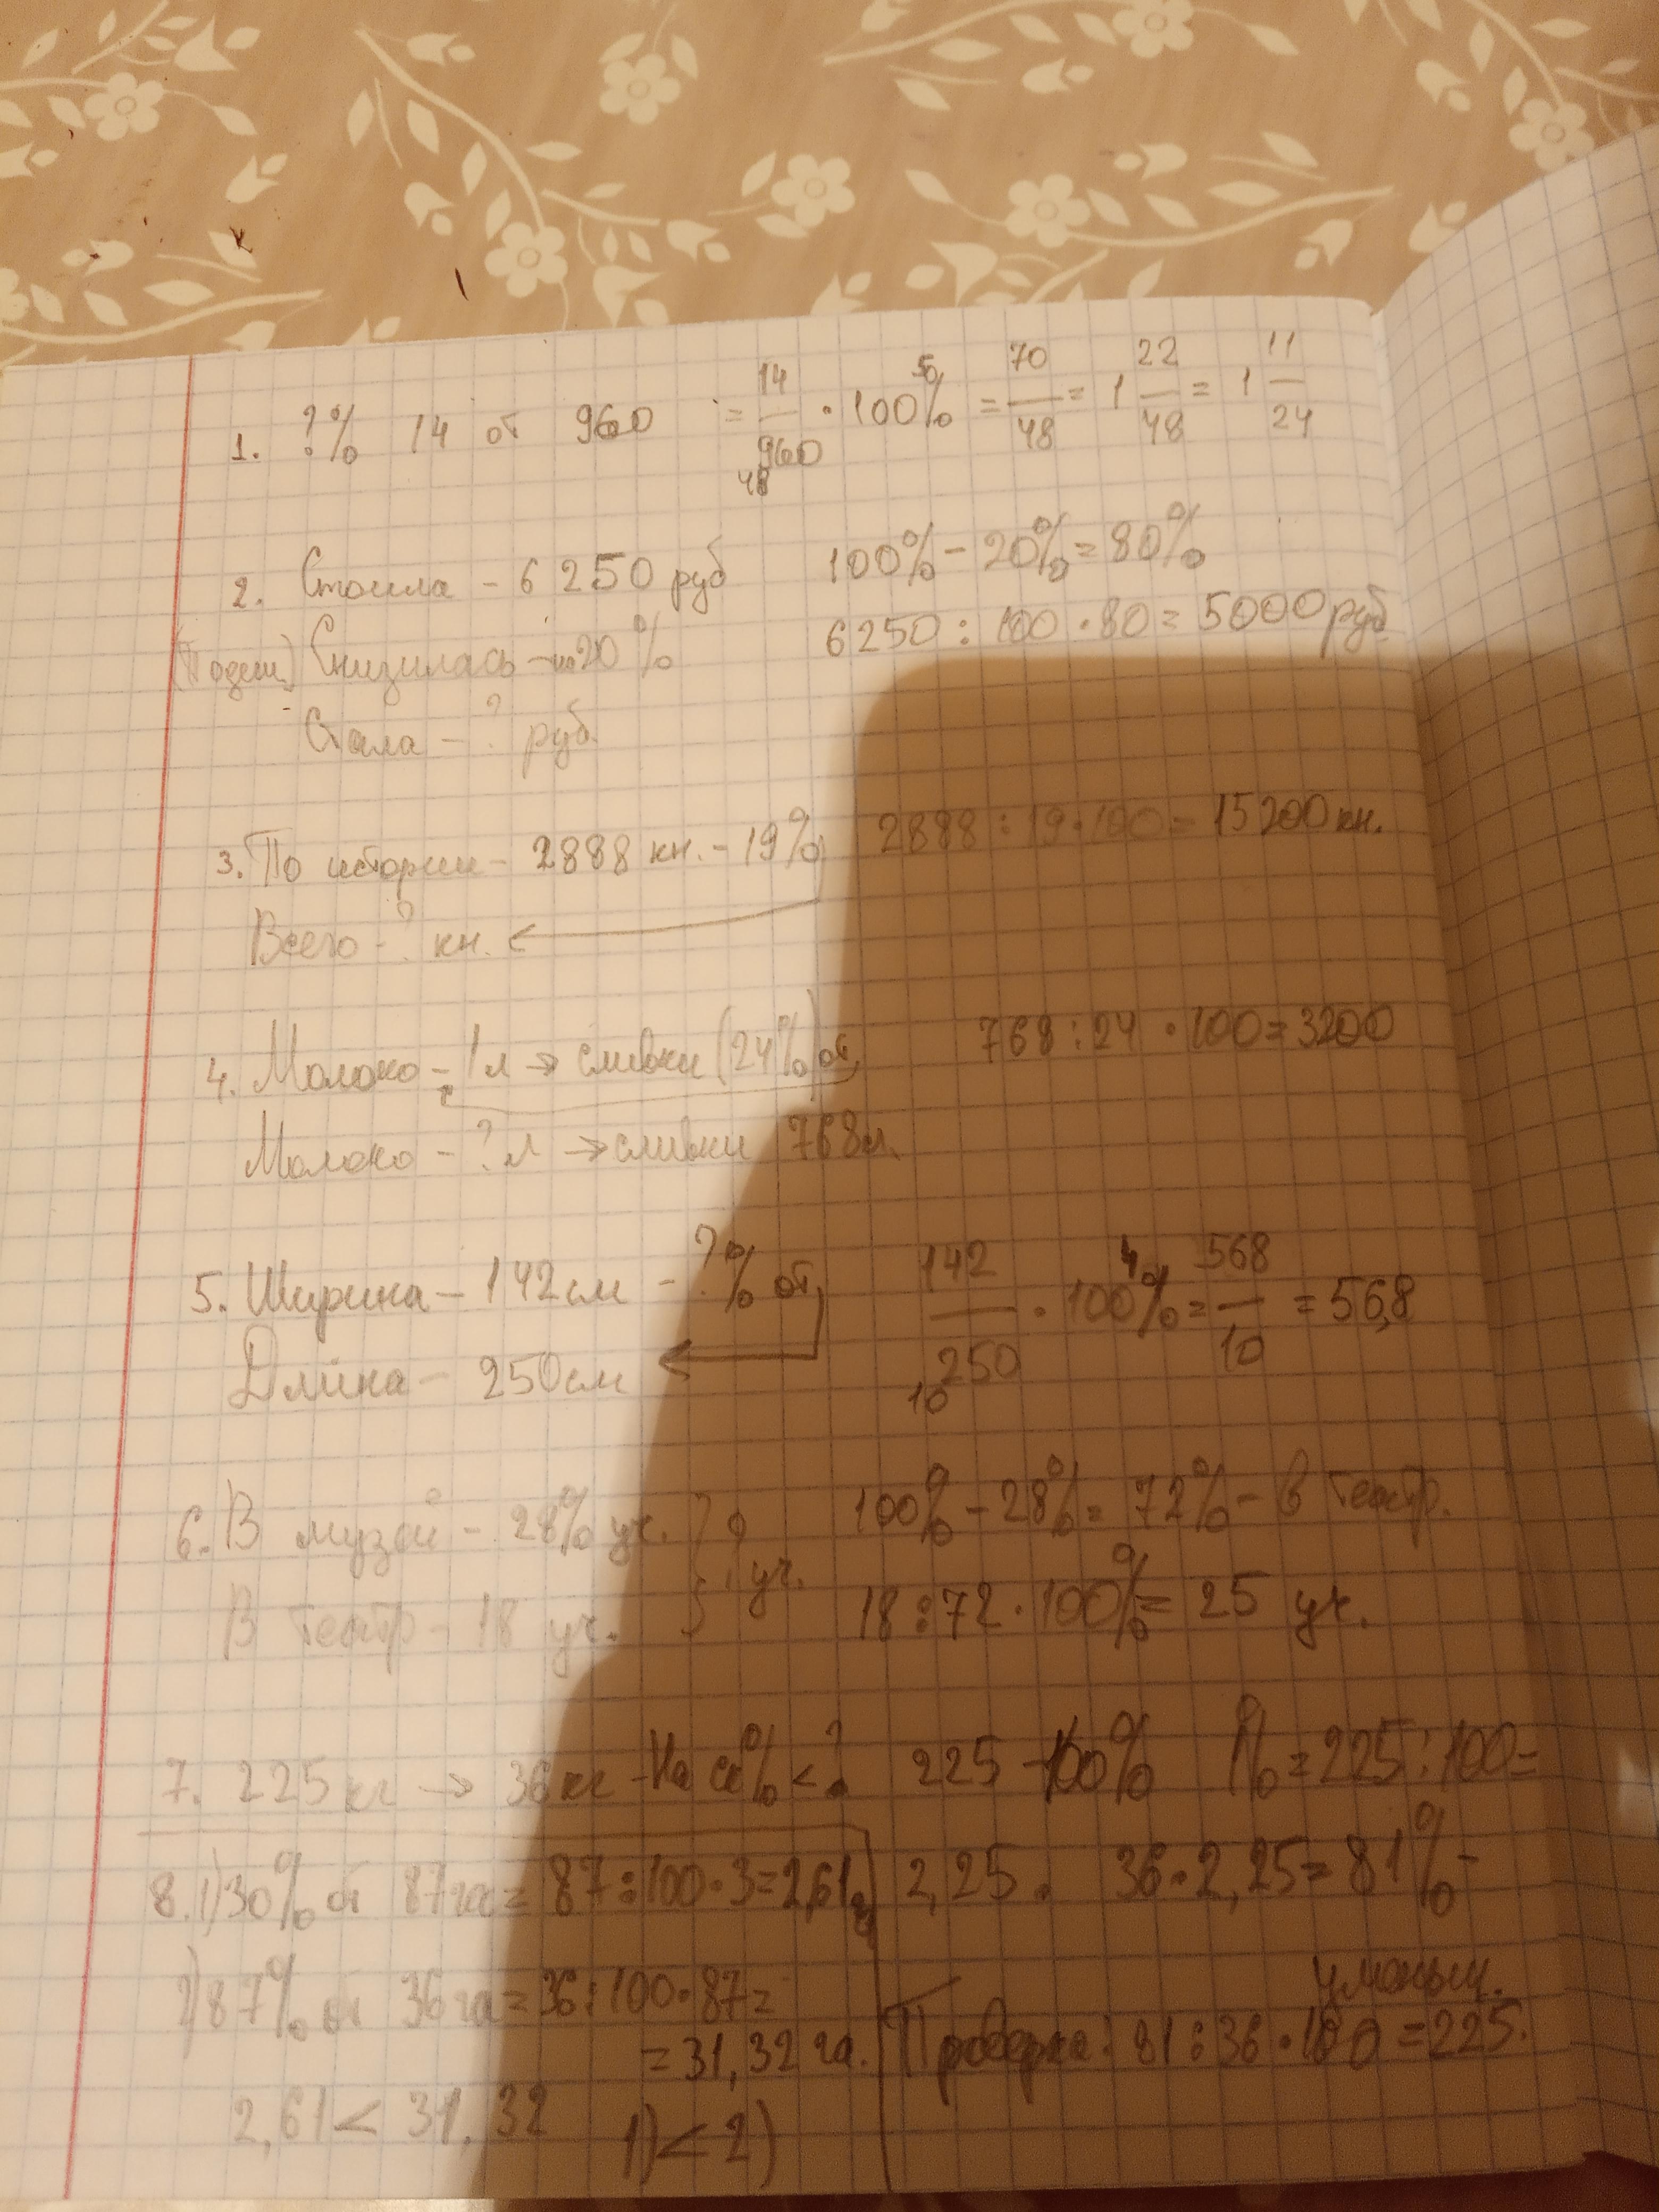 1. ?% 14 от 960 = 14/960 · 100% = 70/48 = 1 22/48 = 1 11/24
50
48
2. Стоила - 6 250 руб 100% - 20% = 80%
Снизилась - на 20% 6250 : 100 · 80 = 5000 руб
Стала - ? руб.
3. По истории - 2888 кн. - 19% 2888 : 19 · 100 = 15200 кн.
Всего - ? кн.
4. Молоко - 1л → сливки (24%) от 768 : 24 · 100 = 3200
Молоко - ? л → сливки 768л.
5. Ширина - 142 см - ?% от 142/250 · 100% = 568/10 = 56,8
4
10
Длина - 250 см
6. В музей - 28% уч. } ? уч. 100% - 28% = 72% - в театр.
В театр - 18 уч. 18 : 72 · 100% = 25 уч.
7. 225 кг → 36 кг - На ск% < ? 225 - 100% 1% = 225 : 100 =
2,25. 36 · 2,25 = 81% -
уменьш.
Проверка: 81 : 36 · 100 = 225.
8. 1) 30% от 87 га = 87 : 100 · 3 = 2,61га
2) 87% от 36 га = 36 : 100 · 87 =
= 31,32 га.
2,61 < 31,32 1) < 2)